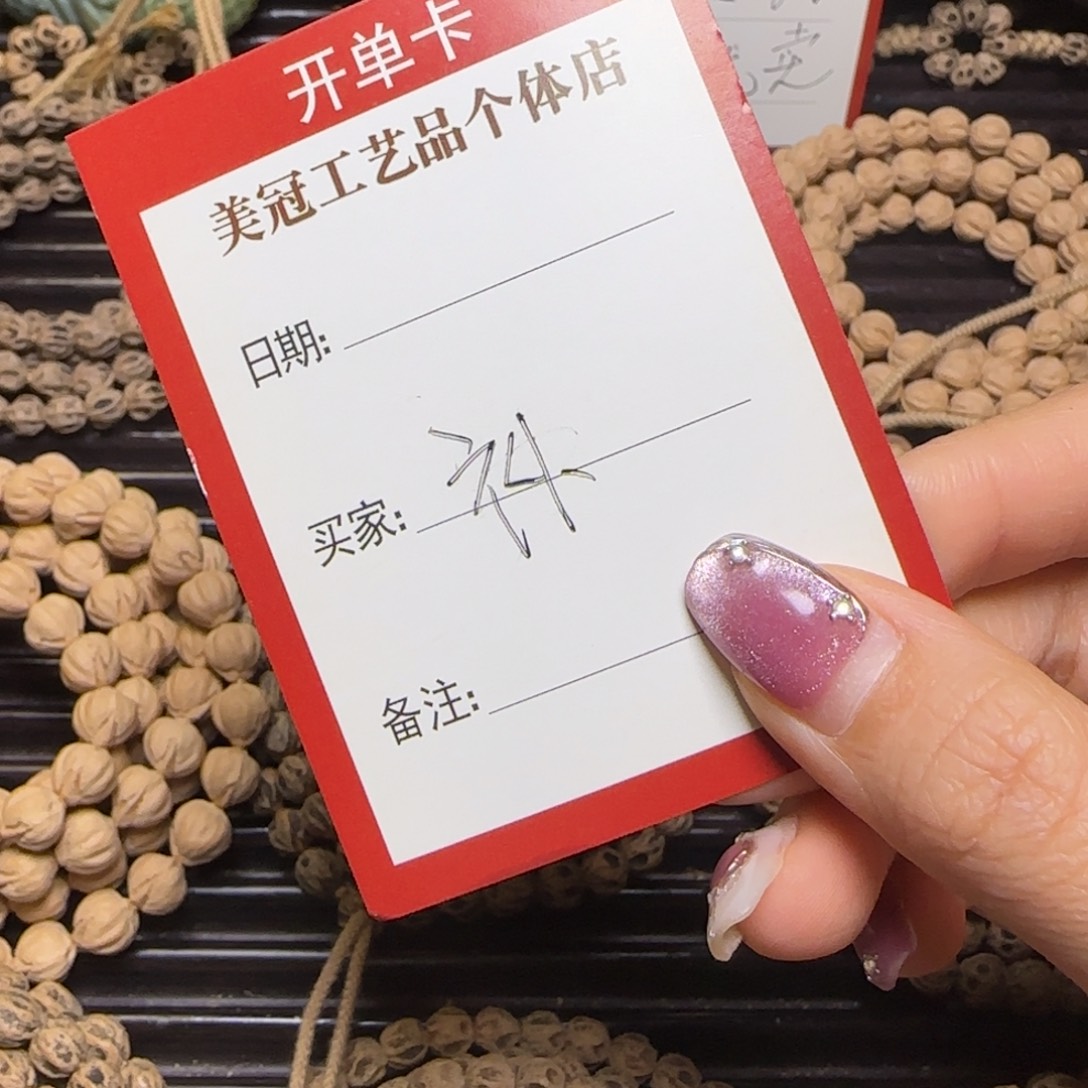 开单卡
美冠工艺品个体店
日期:
买家:
备注: